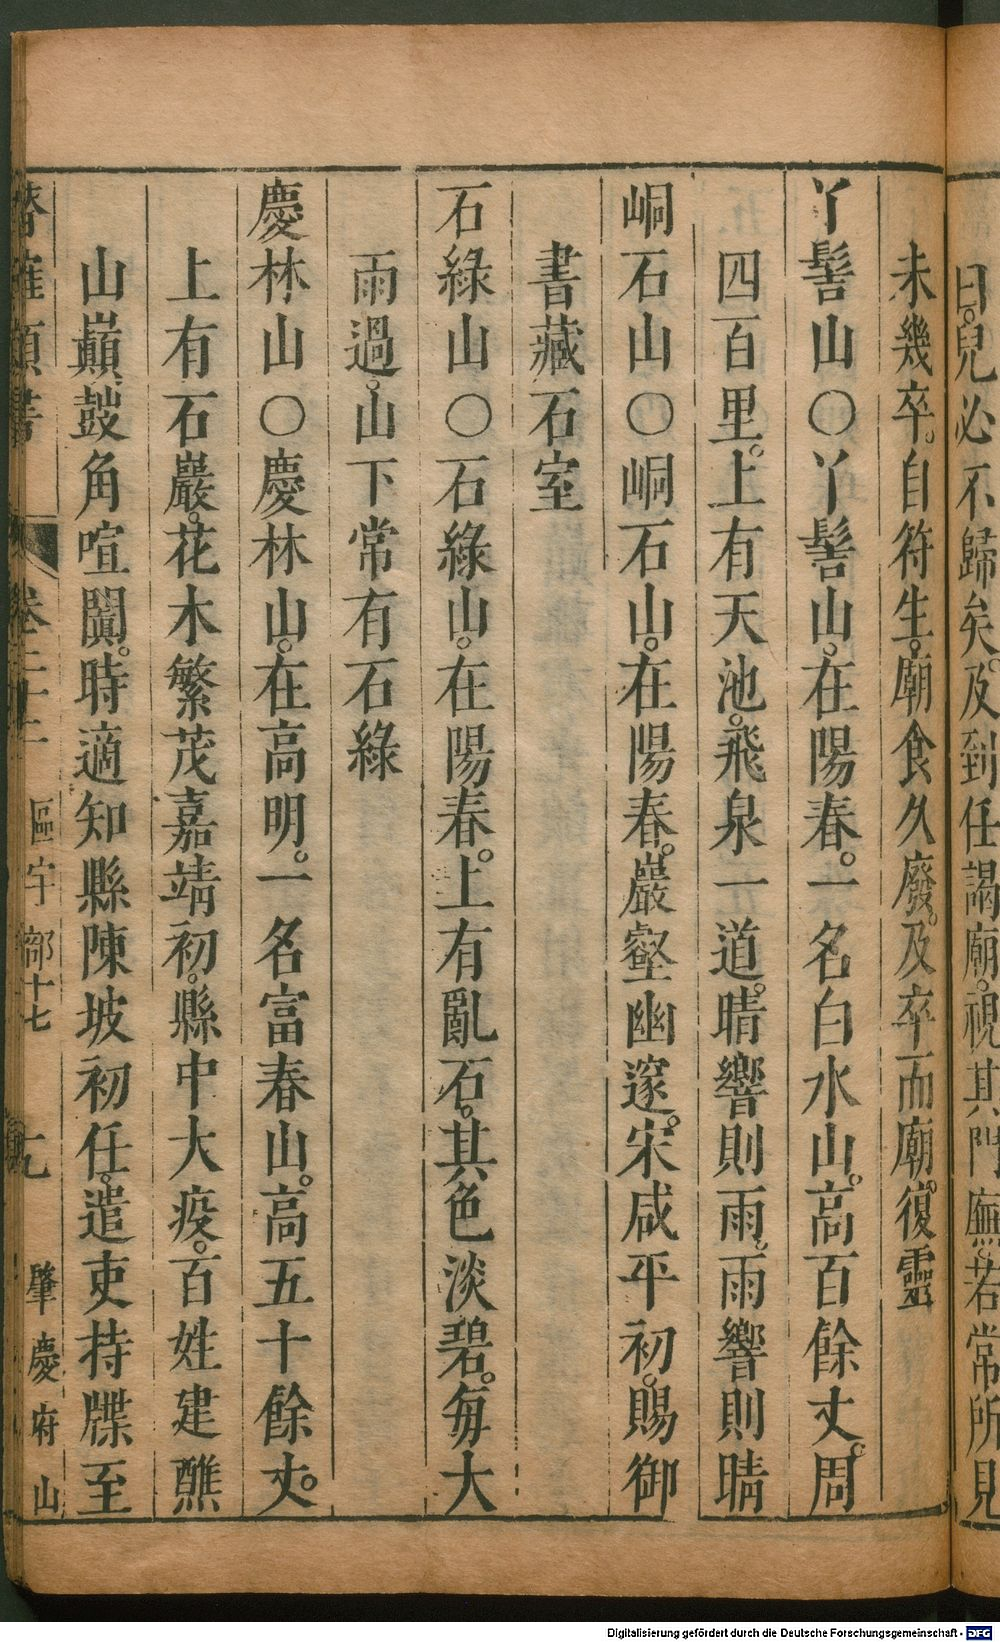 日。兒必不歸矣。及到任謁廟。視其門廡。若常所見
未幾卒。自符生。廟食久廢。及卒而廟。復靈
丫髻山○丫髻山。在陽春。一名白水山。高百餘丈。周
四百里。上有天池。飛泉一道。晴響則雨。雨響則晴
峒石山○峒石山。在陽春。巖壑幽邃。宋咸平初。賜御
書藏石室
石綠山○石綠山。在陽春。上有亂石。其色淡碧。每大
雨過。山下常有石綠
慶林山○慶林山。在高明。一名富春山。高五十餘丈。
上有石巖。花木繁茂嘉靖初。縣中大疫。百姓建醮
山巔。鼓角喧闐。時適知縣陳坡初任。遣吏持牒至
卷二十二 區宇部十七 七 肇慶府山
Digitalisierung gefördert durch die Deutsche Forschungsgemeinschaft - DFG